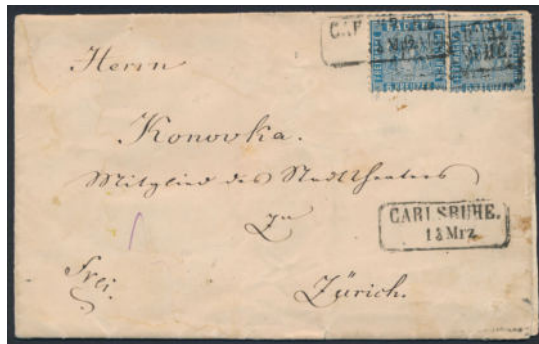 Herrn
Konovka.
Mitglied des Stadttheaters
zu
CARLSRUHE.
Mrz
frei.
Zürich.